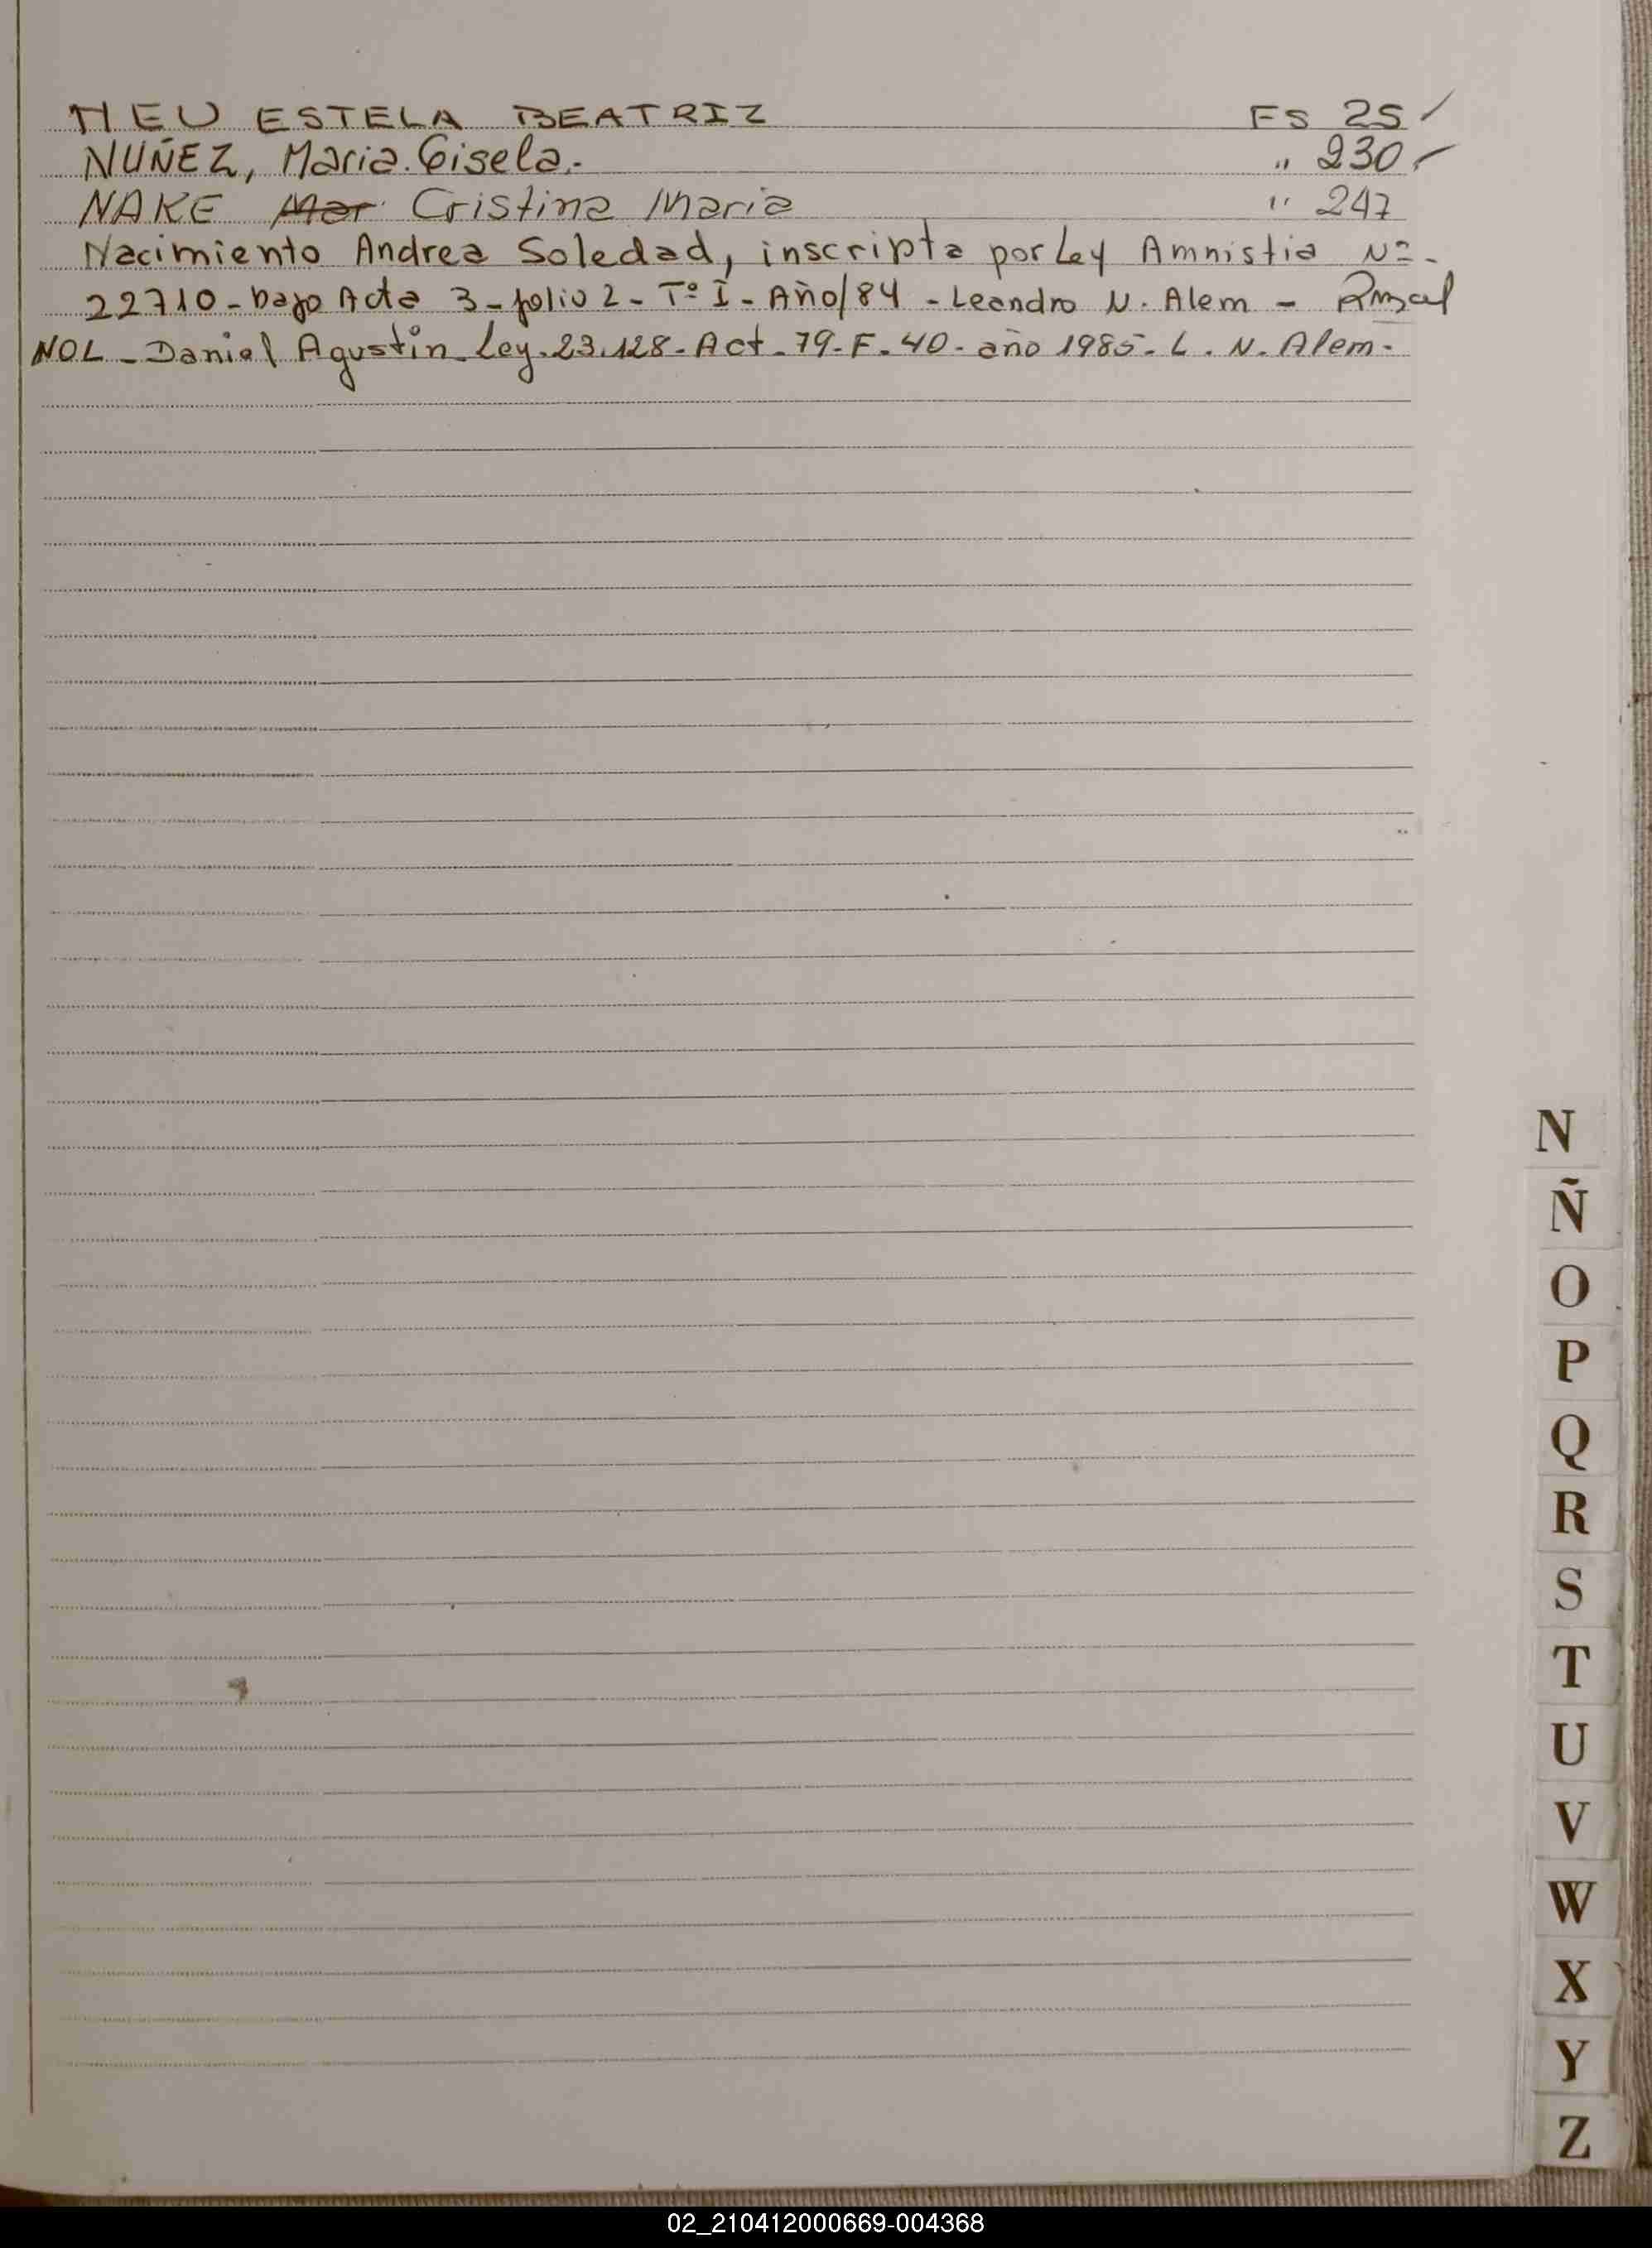 NEU ESTELA BEATRIZ FS 25 /
NUÑEZ, Maria Gisela.- " 230 -
NAKE Mar Cristina Maria " 247
Nacimiento Andrea Soledad, inscripta por Ley Amnistia Nº -
22710 - bajo Acta 3 - folio 2 - Tº I - Año/84 - Leandro N. Alem -
NOL - Daniel Agustin Ley. 23.128 - Act - 79 - F. 40 - año 1985 - L. N. Alem -
N
Ñ
O
P
Q
R
S
T
U
V
W
X
Y
Z
02_210412000669-004368